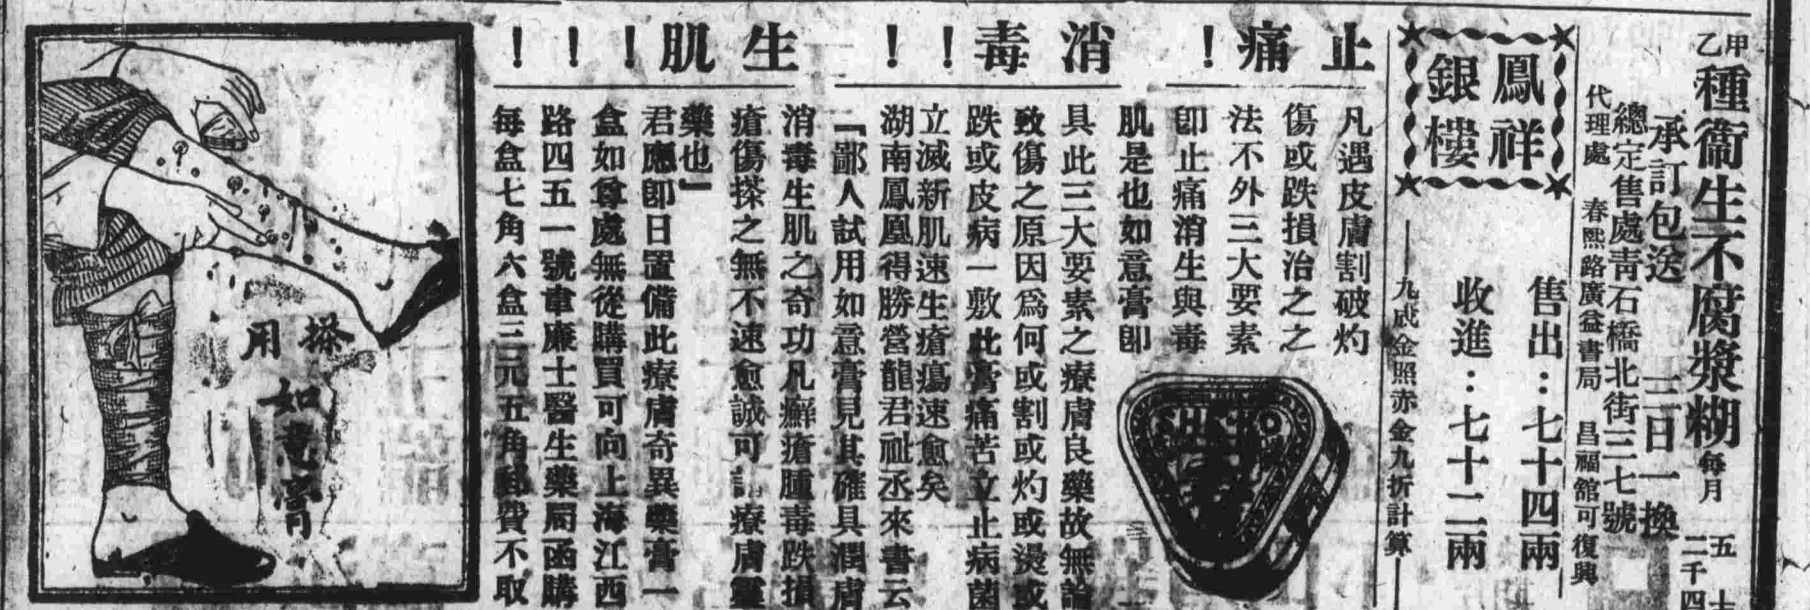 甲乙種衛生不腐漿糊 每月
承訂包送 三日一換
總定售處青石橋北街三七號
代理處 春熙路廣益書局 昌福舘可復興
鳳祥
銀樓
售出：七十四兩
收進：七十二兩
九成金照赤金九折計算
止痛！
消毒！！
生肌！！！
凡遇皮膚割破灼
傷或跌損治之之
法不外三大要素
卽止痛消生與毒
肌是也如意膏卽
具此三大要素之療膚良藥故無論
致傷之原因爲何或割或灼或燙或
跌或皮病一敷此膏痛苦立止病菌
立滅新肌速生瘡瘍速愈矣
湖南鳳凰得勝營龍君祉丞來書云
「鄙人試用如意膏見其確具潤膚
消毒生肌之奇功凡癬瘡腫毒跌損
瘡傷搽之無不速愈誠可 療膚靈
藥也」
君應卽日置備此療膚奇異藥膏一
盒如尊處無從購買可向上海江西
路四五一號韋廉士醫生藥局函購
每盒七角六盒三元五角 費不取
搽用
如意膏